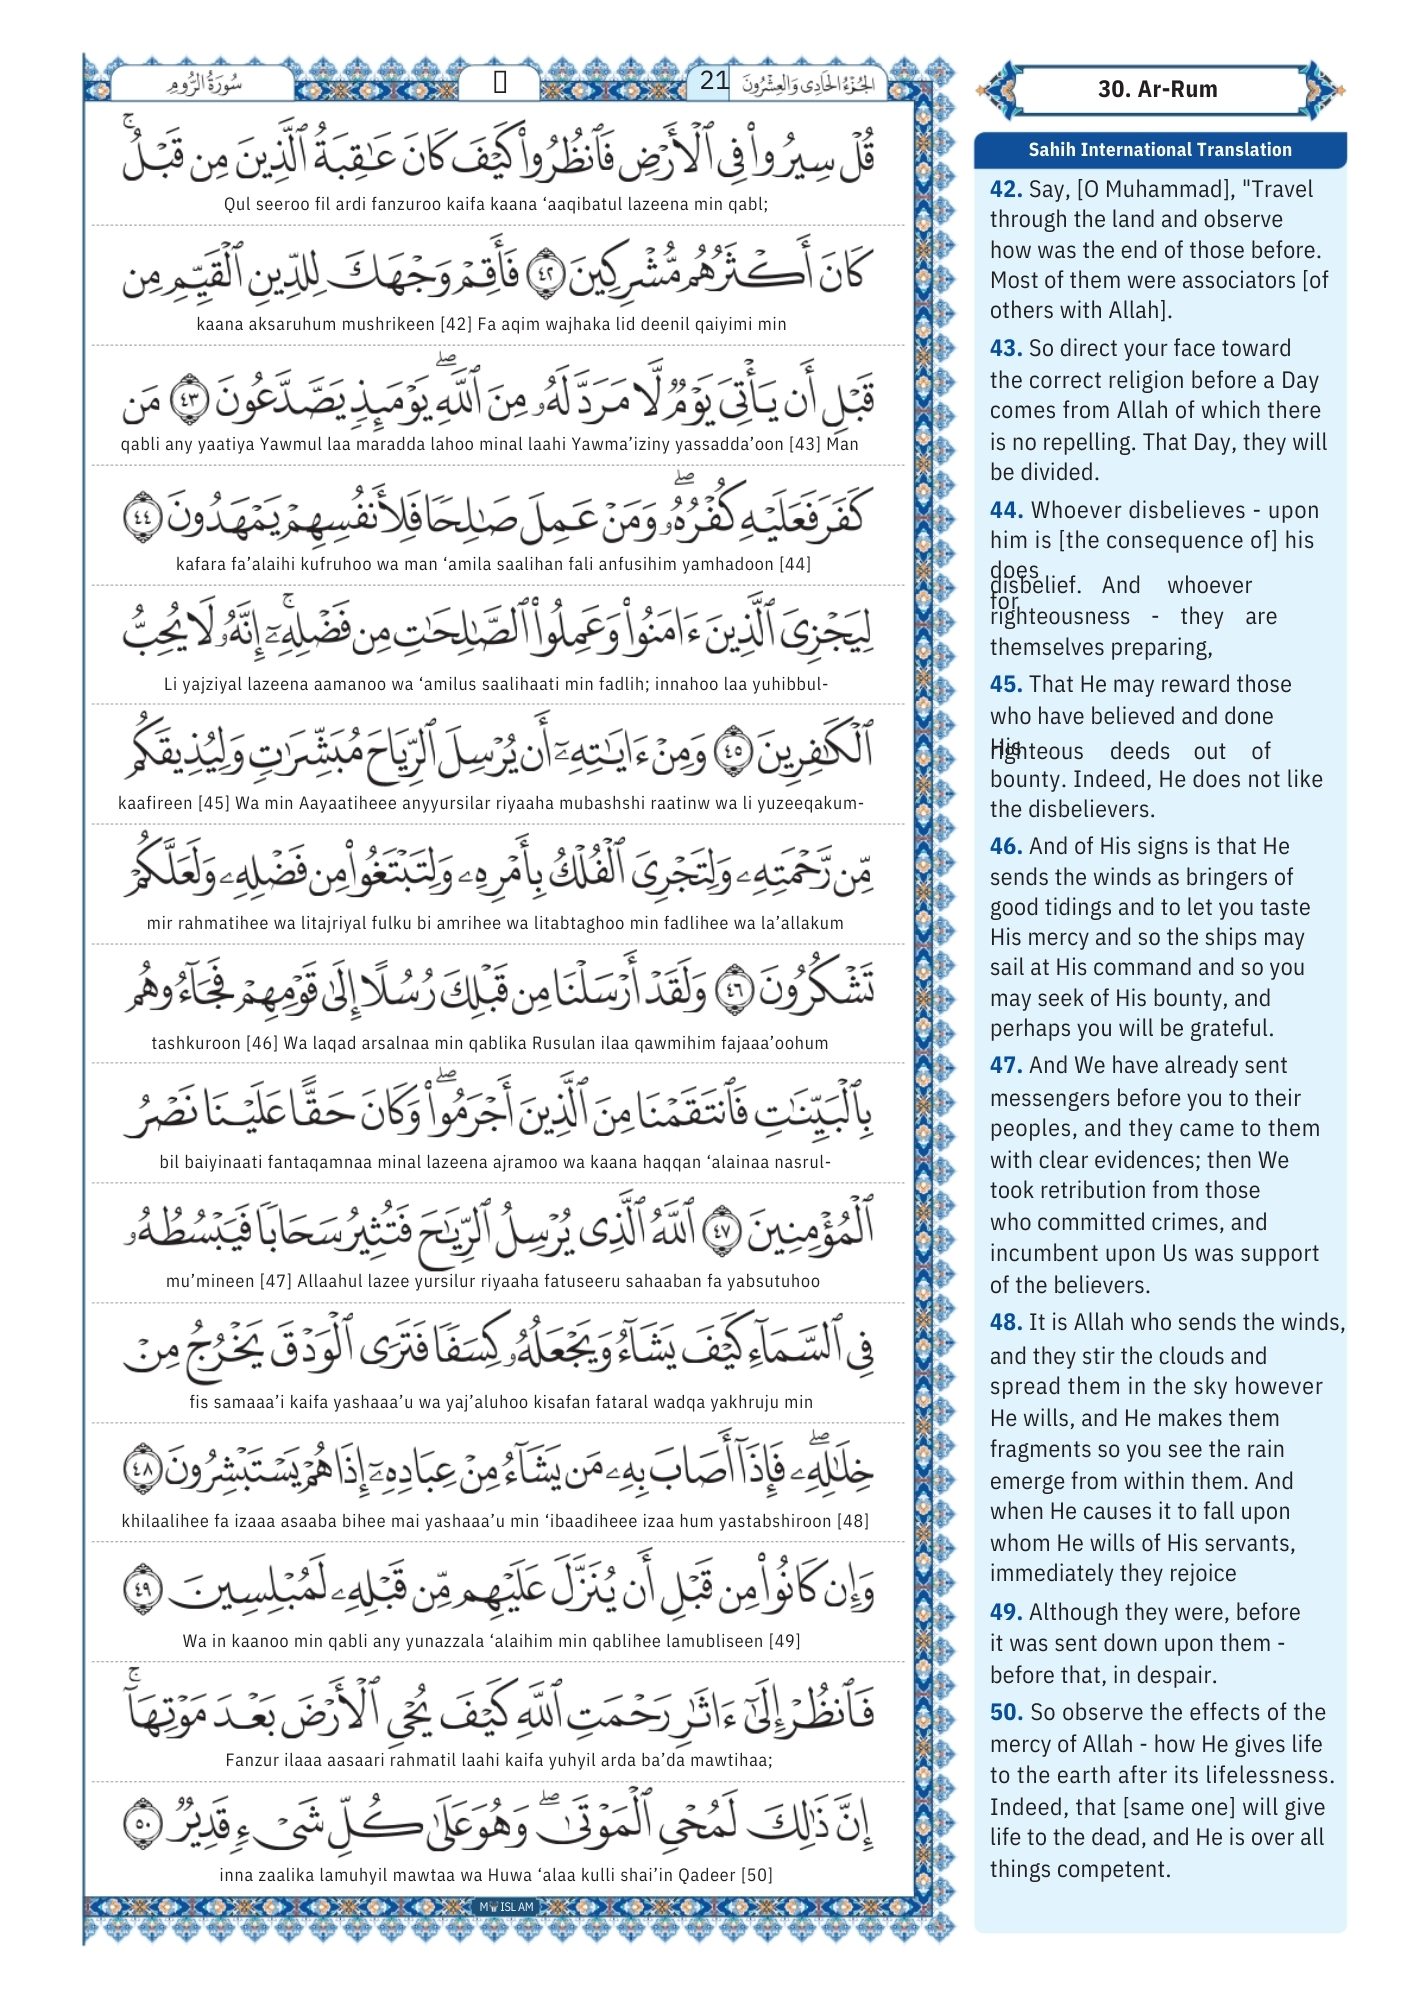 سُورَةُ الرُّومِ
21
الجُزْءُ الحَادِى وَالعِشْرُونَ
قُلْ سِيرُوا۟ فِى ٱلْأَرْضِ فَٱنظُرُوا۟ كَيْفَ كَانَ عَـٰقِبَةُ ٱلَّذِينَ مِن قَبْلُ ۚ
Qul seeroo fil ardi fanzuroo kaifa kaana ‘aaqibatul lazeena min qabl;
كَانَ أَكْثَرُهُم مُّشْرِكِينَ ٤٢ فَأَقِمْ وَجْهَكَ لِلدِّينِ ٱلْقَيِّمِ مِن
kaana aksaruhum mushrikeen [42] Fa aqim wajhaka lid deenil qaiyimi min
قَبْلِ أَن يَأْتِىَ يَوْمٌ لَّا مَرَدَّ لَهُۥ مِنَ ٱللَّهِ ۖ يَوْمَئِذٍ يَصَّدَّعُونَ ٤٣ مَن
qabli any yaatiya Yawmul laa maradda lahoo minal laahi Yawma’iziny yassadda’oon [43] Man
كَفَرَ فَعَلَيْهِ كُفْرُهُۥ ۖ وَمَنْ عَمِلَ صَـٰلِحًا فَلِأَنفُسِهِمْ يَمْهَدُونَ ٤٤
kafara fa’alaihi kufruhoo wa man ‘amila saalihan fali anfusihim yamhadoon [44]
لِيَجْزِىَ ٱلَّذِينَ ءَامَنُوا۟ وَعَمِلُوا۟ ٱلصَّـٰلِحَـٰتِ مِن فَضْلِهِۦٓ ۚ إِنَّهُۥ لَا يُحِبُّ
Li yajziyal lazeena aamanoo wa ‘amilus saalihaati min fadlih; innahoo laa yuhibbul-
ٱلْكَـٰفِرِينَ ٤٥ وَمِنْ ءَايَـٰتِهِۦٓ أَن يُرْسِلَ ٱلرِّيَاحَ مُبَشِّرَٰتٍ وَلِيُذِيقَكُم
kaafireen [45] Wa min Aayaatiheee anyyursilar riyaaha mubashshi raatinw wa li yuzeeqakum-
مِّن رَّحْمَتِهِۦ وَلِتَجْرِىَ ٱلْفُلْكُ بِأَمْرِهِۦ وَلِتَبْتَغُوا۟ مِن فَضْلِهِۦ وَلَعَلَّكُمْ
mir rahmatihee wa litajriyal fulku bi amrihee wa litabtaghoo min fadlihee wa la’allakum
تَشْكُرُونَ ٤٦ وَلَقَدْ أَرْسَلْنَا مِن قَبْلِكَ رُسُلًا إِلَىٰ قَوْمِهِمْ فَجَآءُوهُم
tashkuroon [46] Wa laqad arsalnaa min qablika Rusulan ilaa qawmihim fajaaa’oohum
بِٱلْبَيِّنَـٰتِ فَٱنتَقَمْنَا مِنَ ٱلَّذِينَ أَجْرَمُوا۟ ۖ وَكَانَ حَقًّا عَلَيْنَا نَصْرُ
bil baiyinaati fantaqamnaa minal lazeena ajramoo wa kaana haqqan ‘alainaa nasrul-
ٱلْمُؤْمِنِينَ ٤٧ ٱللَّهُ ٱلَّذِى يُرْسِلُ ٱلرِّيَـٰحَ فَتُثِيرُ سَحَابًا فَيَبْسُطُهُۥ
mu’mineen [47] Allaahul lazee yursilur riyaaha fatuseeru sahaaban fa yabsutuhoo
فِى ٱلسَّمَآءِ كَيْفَ يَشَآءُ وَيَجْعَلُهُۥ كِسَفًا فَتَرَى ٱلْوَدْقَ يَخْرُجُ مِنْ
fis samaaa’i kaifa yashaaa’u wa yaj’aluhoo kisafan fataral wadqa yakhruju min
خِلَـٰلِهِۦ ۖ فَإِذَآ أَصَابَ بِهِۦ مَن يَشَآءُ مِنْ عِبَادِهِۦٓ إِذَا هُمْ يَسْتَبْشِرُونَ ٤٨
khilaalihee fa izaaa asaaba bihee mai yashaaa’u min ‘ibaadiheee izaa hum yastabshiroon [48]
وَإِن كَانُوا۟ مِن قَبْلِ أَن يُنَزَّلَ عَلَيْهِم مِّن قَبْلِهِۦ لَمُبْلِسِينَ ٤٩
Wa in kaanoo min qabli any yunazzala ‘alaihim min qablihee lamubliseen [49]
فَٱنظُرْ إِلَىٰٓ ءَاثَـٰرِ رَحْمَتِ ٱللَّهِ كَيْفَ يُحْىِ ٱلْأَرْضَ بَعْدَ مَوْتِهَآ ۚ
Fanzur ilaaa aasaari rahmatil laahi kaifa yuhyil arda ba’da mawtihaa;
إِنَّ ذَٰلِكَ لَمُحْىِ ٱلْمَوْتَىٰ ۖ وَهُوَ عَلَىٰ كُلِّ شَىْءٍ قَدِيرٌ ٥٠
inna zaalika lamuhyil mawtaa wa Huwa ‘alaa kulli shai’in Qadeer [50]
30. Ar-Rum
Sahih International Translation
42. Say, [O Muhammad], "Travel
through the land and observe
how was the end of those before.
Most of them were associators [of
others with Allah].
43. So direct your face toward
the correct religion before a Day
comes from Allah of which there
is no repelling. That Day, they will
be divided.
44. Whoever disbelieves - upon
him is [the consequence of] his
does
disbelief. And whoever
for
righteousness - they are
themselves preparing,
45. That He may reward those
who have believed and done
His
righteous deeds out of
bounty. Indeed, He does not like
the disbelievers.
46. And of His signs is that He
sends the winds as bringers of
good tidings and to let you taste
His mercy and so the ships may
sail at His command and so you
may seek of His bounty, and
perhaps you will be grateful.
47. And We have already sent
messengers before you to their
peoples, and they came to them
with clear evidences; then We
took retribution from those
who committed crimes, and
incumbent upon Us was support
of the believers.
48. It is Allah who sends the winds,
and they stir the clouds and
spread them in the sky however
He wills, and He makes them
fragments so you see the rain
emerge from within them. And
when He causes it to fall upon
whom He wills of His servants,
immediately they rejoice
49. Although they were, before
it was sent down upon them -
before that, in despair.
50. So observe the effects of the
mercy of Allah - how He gives life
to the earth after its lifelessness.
Indeed, that [same one] will give
life to the dead, and He is over all
things competent.